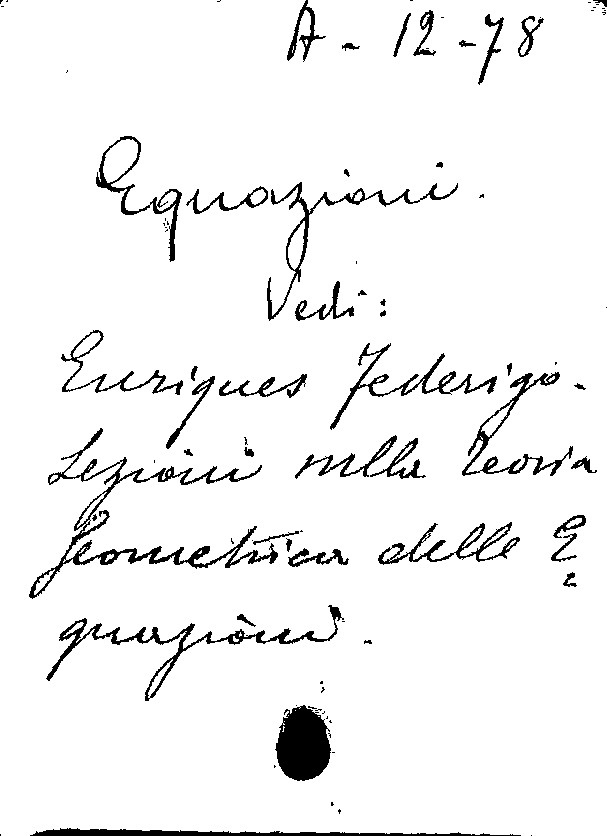 A - 12 - 78
Equazioni.
Vedi:
Enriques Federigo.
Lezioni sulla teoria
Geometrica delle E
quazioni.